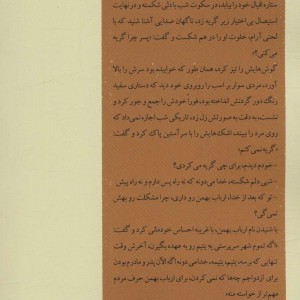 ستاره اقبال خود را بیابد، در سکوت شب با دلی شکسته و در نهایت
استیصال بی اختیار زیر گریه زد، ناگهان صدایی آشنا شنید که با
لحنی آرام، خلوت او را در هم شکست و گفت: «پسر چرا گریه
می‌کنی؟»
گوش‌هایش را تیز کرد، همان طور که خوابیده بود سرش را بالا
آورد، مردی سوار بر اسب را روبروی خود دید که دستاری سفید
رنگ دور گردنش انداخته بود، فوراً خودش را جمع و جور کرد و
نشست، به دقت به صورتش زل زد، تاریکی شب اجازه نمی‌داد که
روی مرد را ببیند، اشک‌هایش را با سر آستین پاک کرد و گفت:
«گریه نمی‌کنم»
- خودم دیدم، برای چی گریه می‌کردی؟
- شبی دلم شکسته، خدا می‌دونه که نه راه پس دارم و نه راه پیش
- تو که بعد از خدا، ارباب بهمن رو داری، چرا مشکلت رو بهش
نمی‌گی؟
با شنیدن نام ارباب بهمن، با غریبه احساس خودمانی کرد و گفت:
«اگه تموم شهر سرپرستی یه یتیم رو به عهده بگیرن، آخرش وقت
تنهایی که برسه، یتیم، یتیمه، خدا می‌دونه اگه الآن پدر و مادرم بودن
برای ازدواجم چه‌ها که نمی‌کردن، برای ارباب بهمن حرف مردم
مهم‌تر از خواسته منه»